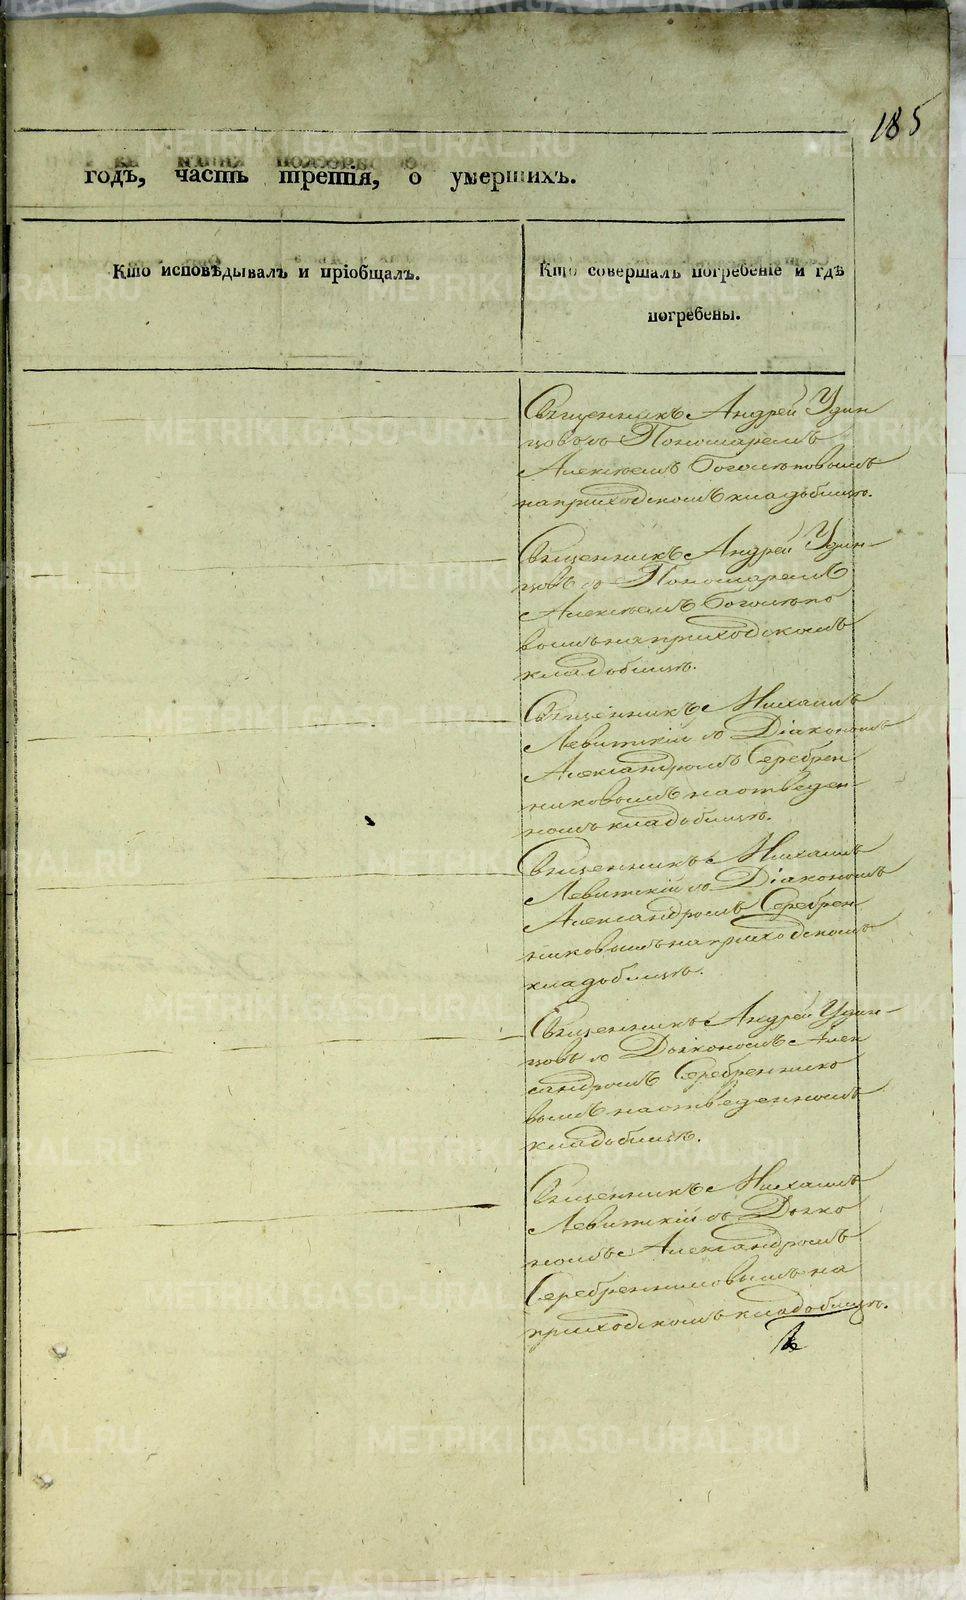 185
годъ, часть третія, о умершихъ.
Кто исповѣдывалъ и пріобщалъ.
Кто совершалъ погребеніе и гдѣ
погребены.
Священникъ Андрей Удин
цовъ съ Пономаремъ
Алексѣемъ Боголѣповымъ
на приходскомъ кладбищѣ.
Священникъ Андрей Удин-
цовъ съ Пономаремъ
Алексѣемъ Боголѣпо
вымъ на приходскомъ
кладбищѣ.
Священникъ Михаилъ
Левитскій съ Діакономъ
Александромъ Серебрен
никовымъ на отведен-
номъ кладбищѣ.
Священникъ Михаилъ
Левитскій съ Діакономъ
Александромъ Серебрен
никовымъ на приходскомъ
кладбищѣ.
Священникъ Андрей Удин-
цовъ съ Дьякономъ Алек
сандромъ Серебреннико
вымъ на отведенномъ
кладбищѣ.
Священникъ Михаилъ
Левитскій съ Дьяко
номъ Александромъ
Серебренниковымъ на
приходскомъ кладбищѣ.
METRIKI.GASO-URAL.RU